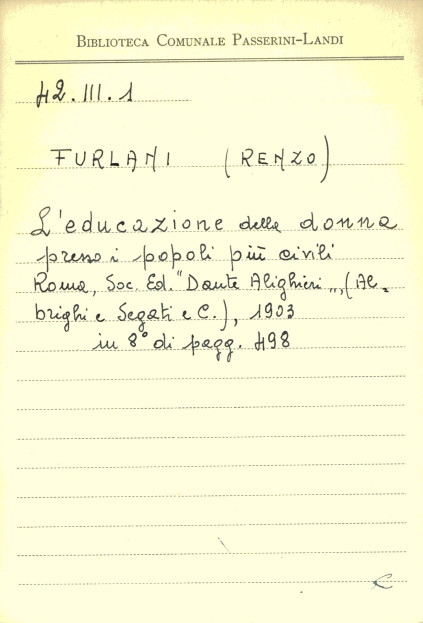 BIBLIOTECA COMUNALE PASSERINI-LANDI
42.III.1
FURLANI (RENZO)
L'educazione della donna
presso i popoli più civili
Roma, Soc. Ed. "Dante Alighieri„, (Al-
brighi e Segati e C.), 1903
in 8° di pagg. 498
C